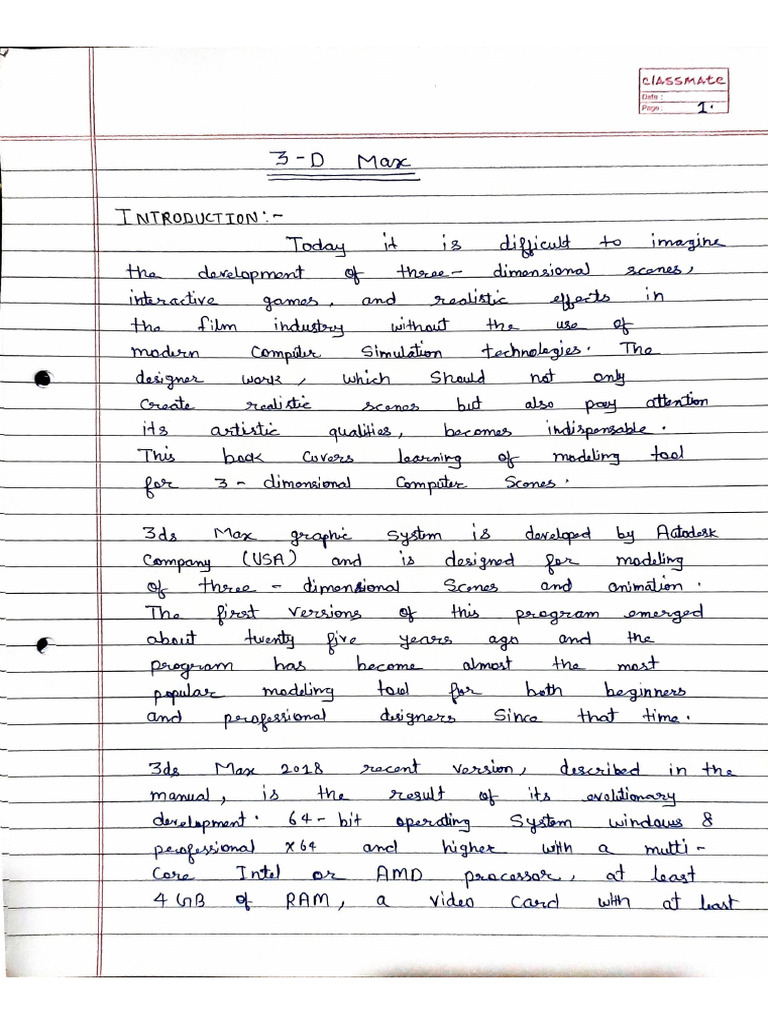 classmate
Date :
Page : 1.
3-D Max
INTRODUCTION:-
Today it is difficult to imagine
the development of three- dimensional scenes,
interactive games, and realistic effects in
the film industry without the use of
modern Computer Simulation technologies. The
designer work, which Should not only
create realistic scenes but also pay attention
its artistic qualities, becomes indispensable.
This book covers learning of modeling tool
for 3- dimensional Computer Scenes.
3ds Max graphic System is developed by Autodesk
Company (USA) and is designed for modeling
of three - dimensional Scenes and animation.
The first versions of this program emerged
about twenty five years ago and the
program has become almost the most
popular modeling tool for both beginners
and perofessional designers Since that time.
3ds Max 2018 recent version, described in the
manual, is the result of its evolitionary
development. 64-bit operating System windows 8
perofessional x64 and higher with a multi-
Core Intel or AMD processor, at least
4 GB of RAM, a video Card with at least